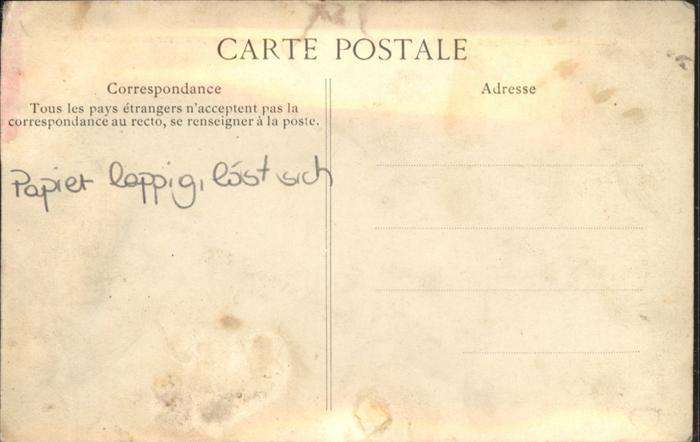 CARTE POSTALE
Correspondance
Tous les pays étrangers n'acceptent pas la
correspondance au recto, se renseigner à la poste.
Adresse
Papier lappig, löst sich